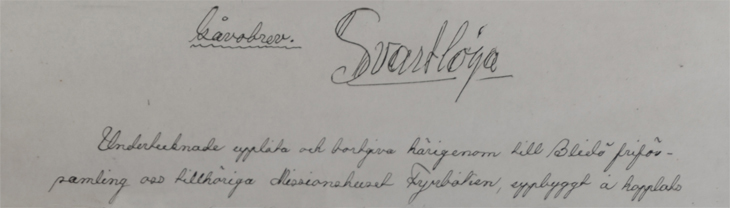 Gåvobrev.
Svartlöga
Undertecknade upplåta och bortgiva härigenom till Blidö friför-
samling oss tillhöriga Missionshuset Fyrbåken, uppbyggt å